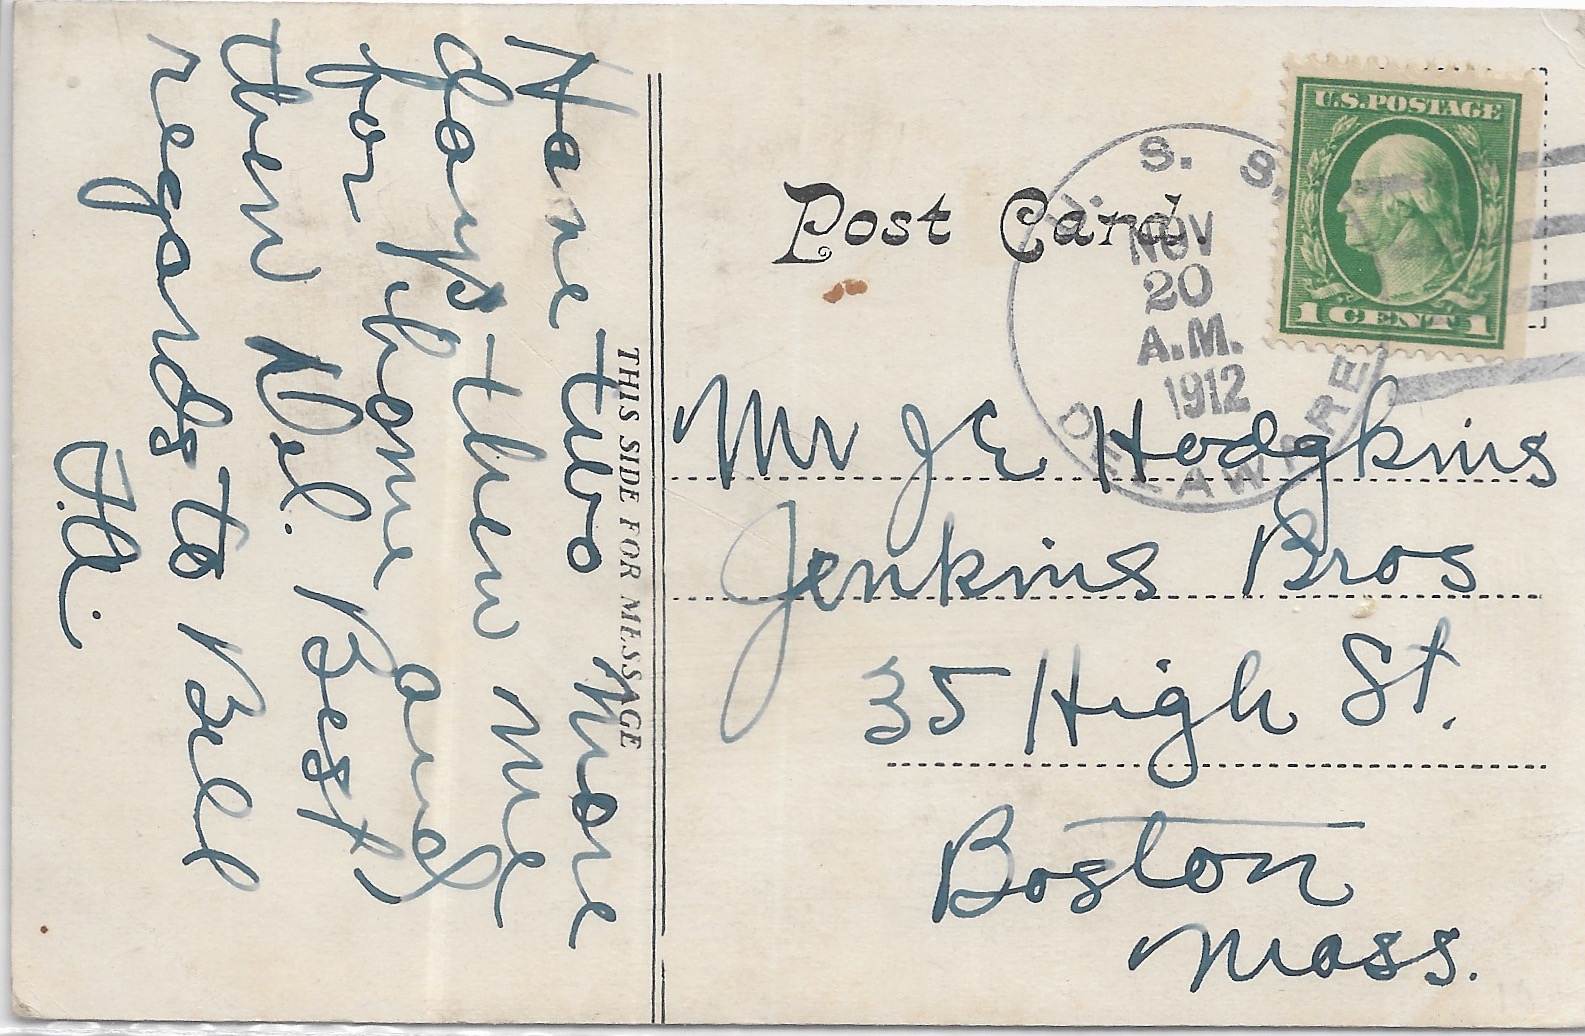 Have two more
days then me
for home and
then Del. Best
regards to Bill
J.A.
THIS SIDE FOR MESSAGE
Post Card.
U.S. POSTAGE
1 CENT 1
U. S. S.
NOV
20
A.M.
1912
DELAWARE
Mr J E Hodgkins
Jenkins Bros
35 High St.
Boston
Mass.